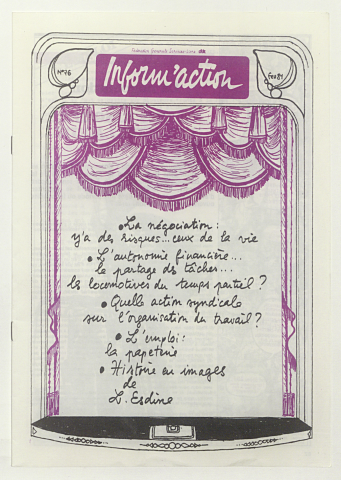 Inform'action
N°76
fev 81
• La négociation :
y'a des risques... ceux de la vie
• L'autonomie financière...
le partage ds tâches...
ls locomotives du temps partiel ?
• Quelle action syndicale
sur l'organisation du travail ?
• L'emploi :
la papeterie
• Histoire en images
de
L. Esdine